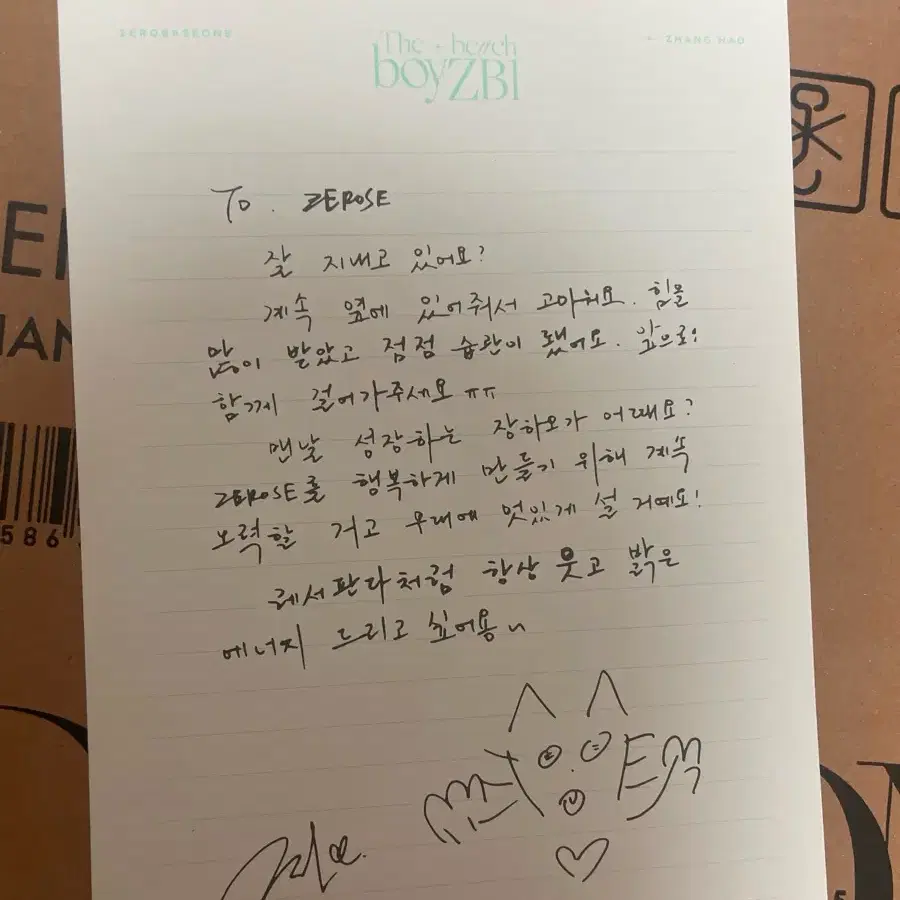 ZEROBASEONE
ZHANG HAO
The beach
boyZB1
To. ZEROSE
잘 지내고 있어요?
계속 옆에 있어줘서 고마워요. 힘을
많이 받았고 점점 습관이 됐어요. 앞으로!
함께 걸어가주세요 ㅠㅠ
맨날 성장하는 장하오가 어때요?
ZEROSE를 행복하게 만들기 위해 계속
노력할 거고 무대에 멋있게 설 거예요!
레서판다처럼 항상 웃고 밝은
에너지 드리고 싶어용~
586